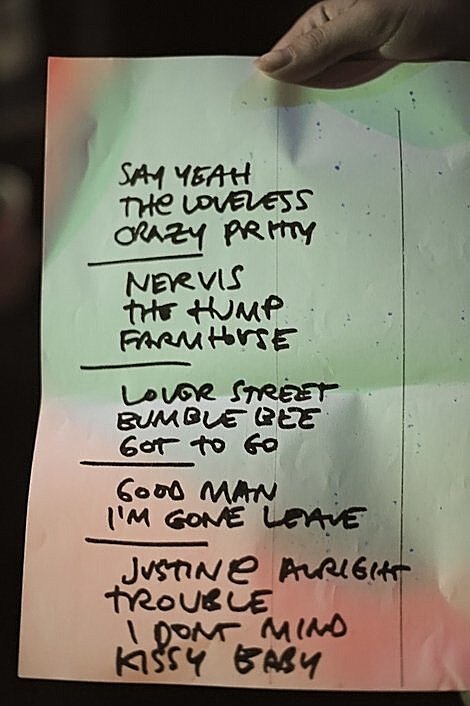 SAY YEAH
THE LOVELESS
CRAZY PRETTY
NERVIS
THE HUMP
FARMHOUSE
LOVER STREET
BUMBLE BEE
GOT TO GO
GOOD MAN
I'M GONE LEAVE
JUSTINE ALRIGHT
TROUBLE
I DONT MIND
KISSY BABY